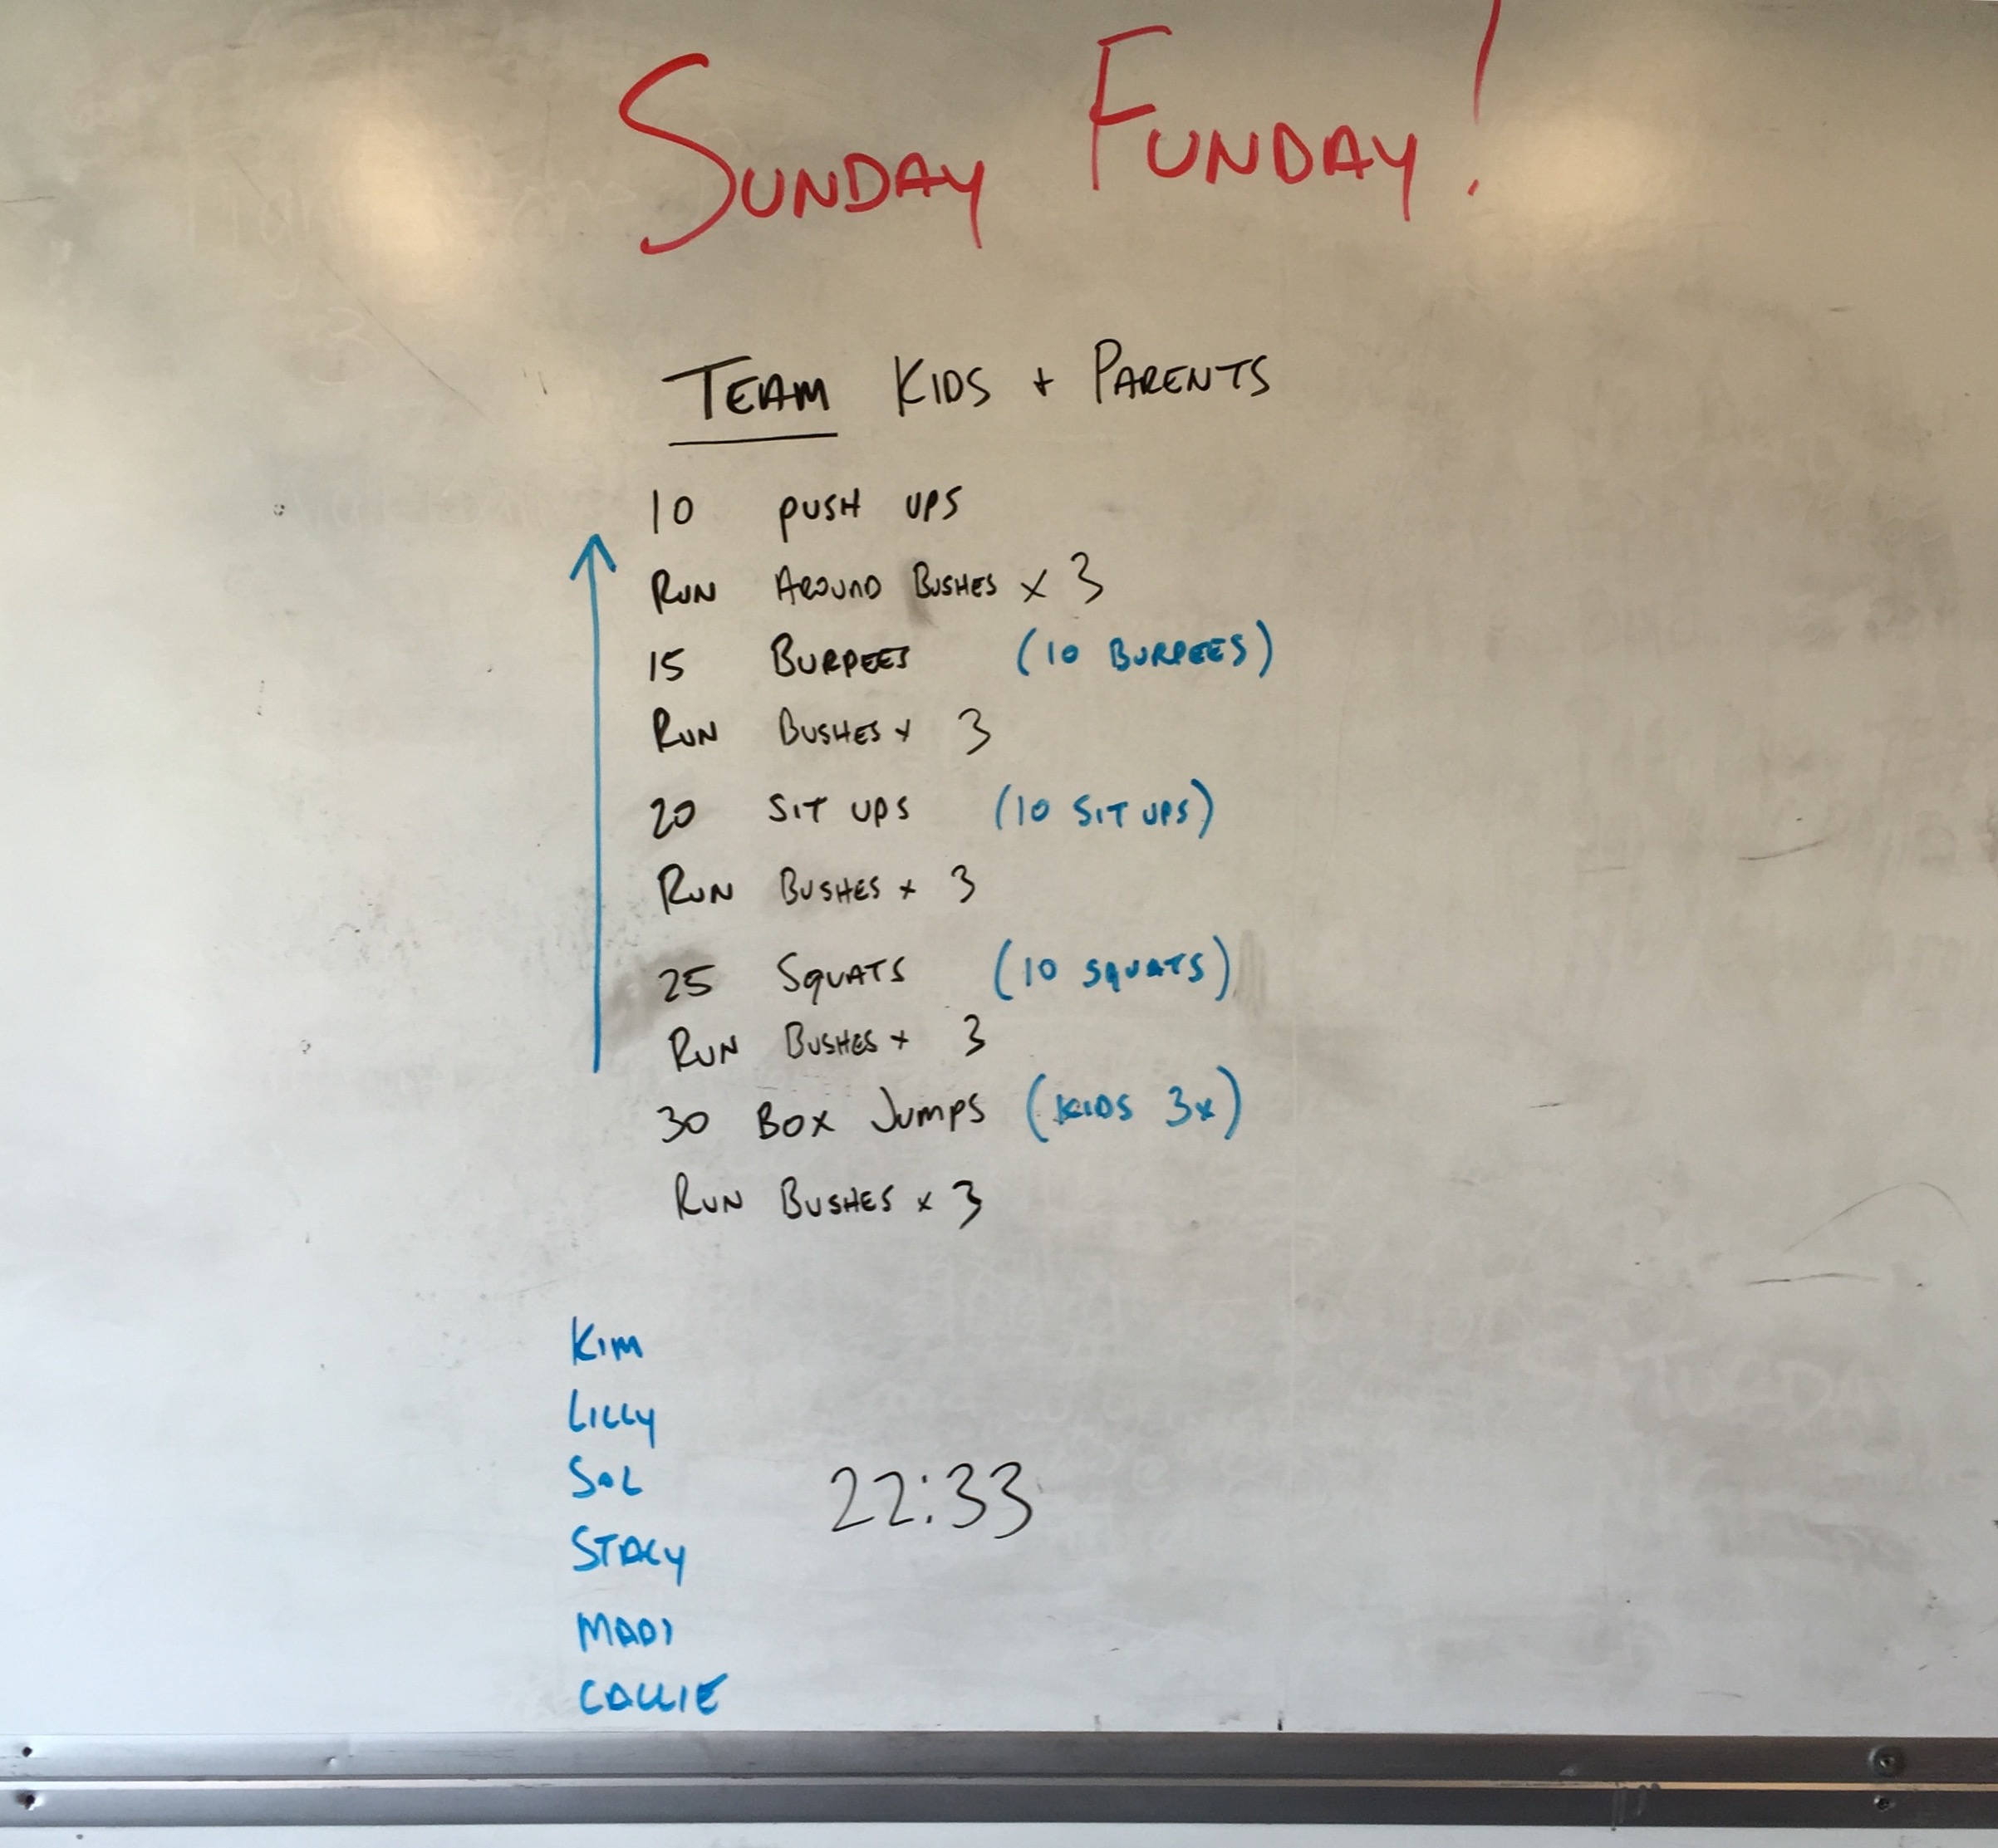 SUNDAY FUNDAY!
TEAM KIDS + PARENTS
10 PUSH UPS
RUN AROUND BUSHES x 3
15 BURPEES (10 BURPEES)
RUN BUSHES x 3
20 SIT UPS (10 SIT UPS)
RUN BUSHES x 3
25 SQUATS (10 SQUATS)
RUN BUSHES x 3
30 BOX JUMPS (KIDS 3x)
RUN BUSHES x 3
KIM
LILLY
SOL
22:33
STACY
MADI
CALLIE